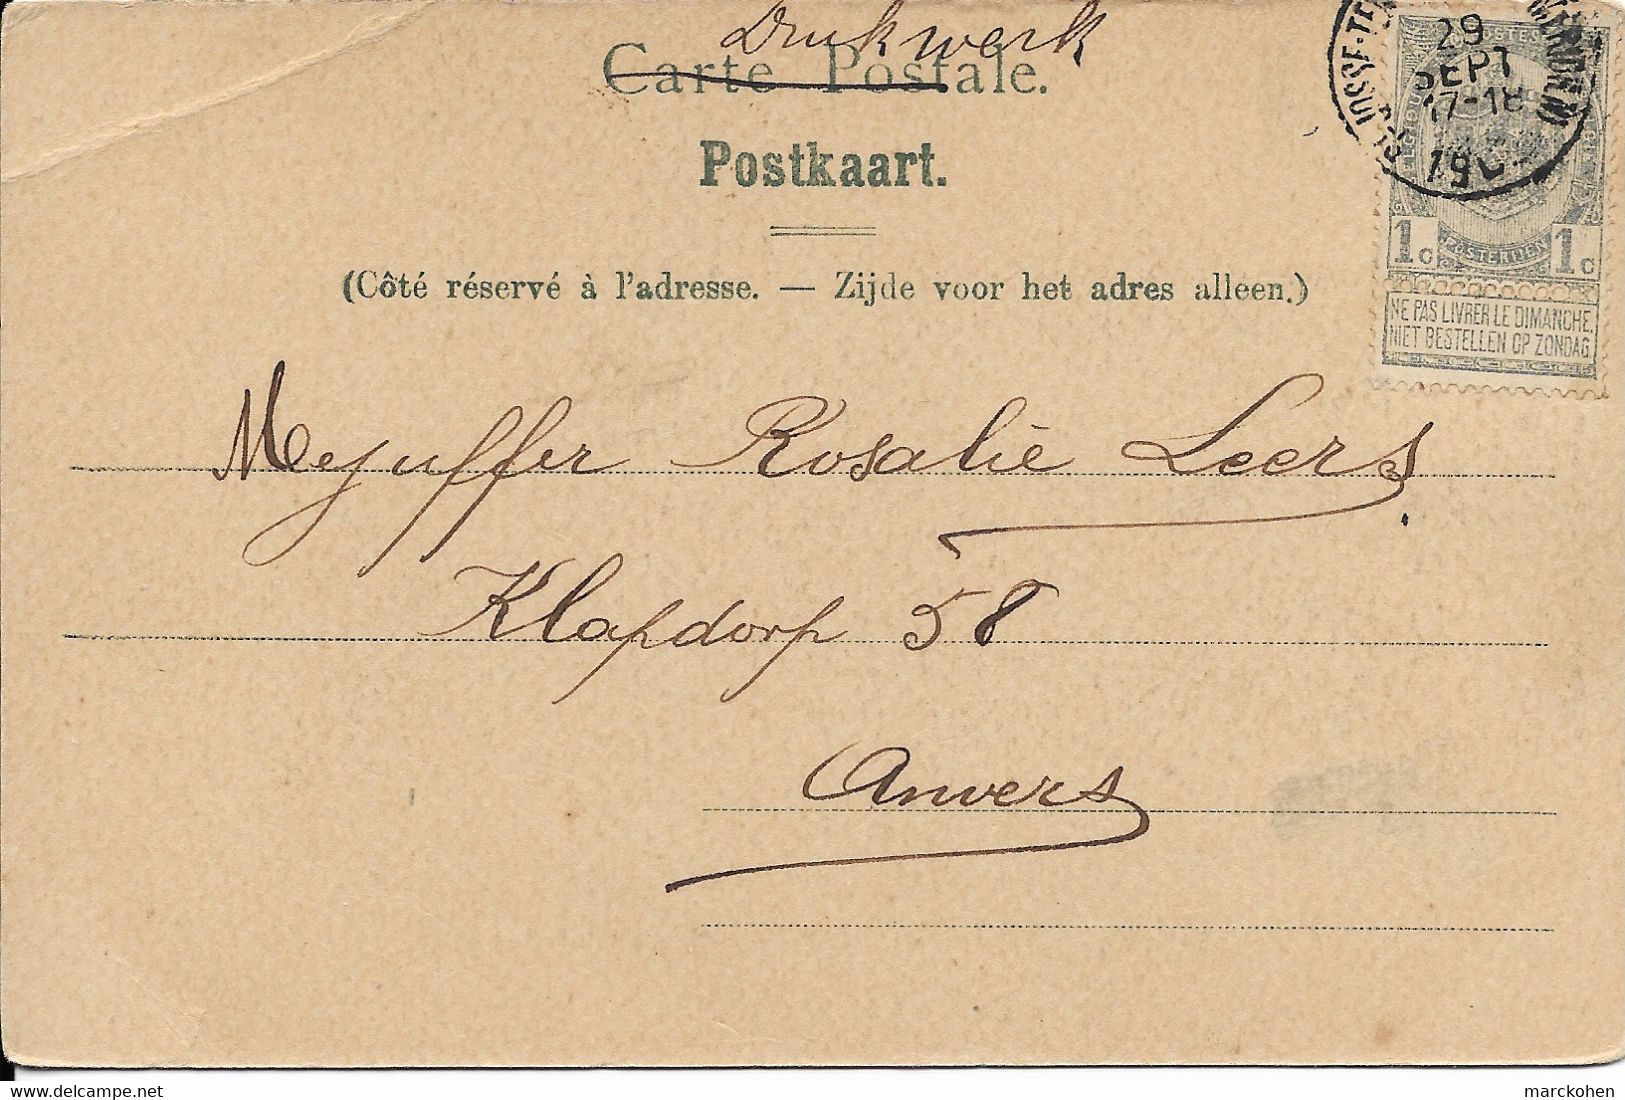 Drukwerk
Carte Postale.
Postkaart.
(Côté réservé à l'adresse. — Zijde voor het adres alleen.)
29
SEPT
17-18
POSTERIJEN
1c 1c
NE PAS LIVRER LE DIMANCHE.
NIET BESTELLEN OP ZONDAG
Mejuffer Rosalie Leers
Klapdorp 58
Anvers
marckohen